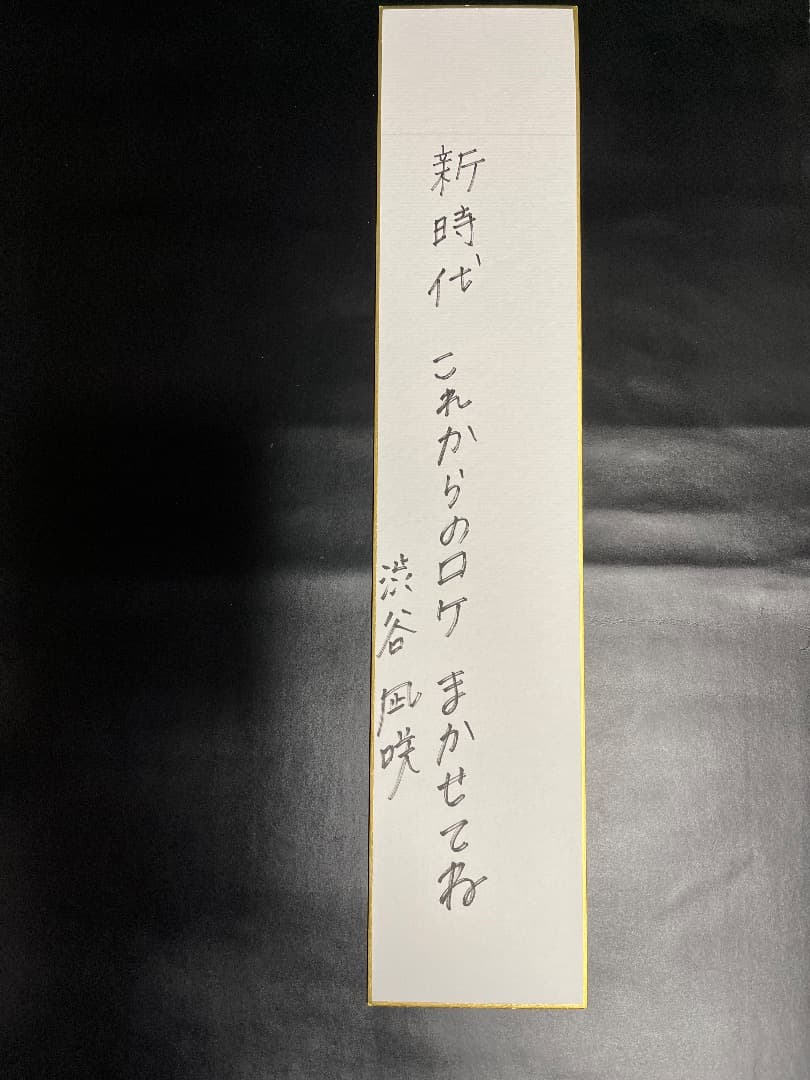 新時代 これからのロケ まかせてね
渋谷 凪咲